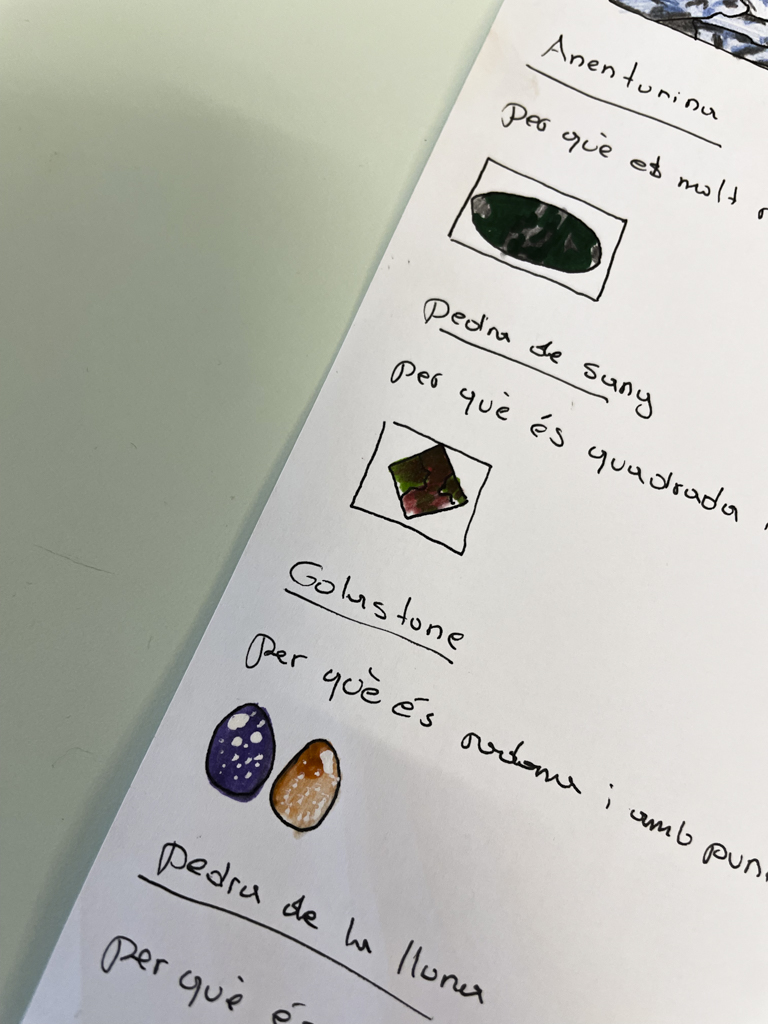 Anenturina
per què es molt
Pedra de sang
per què és quadrada
Golustone
per què és rodona i amb pun
pedra de la lluna
per què és